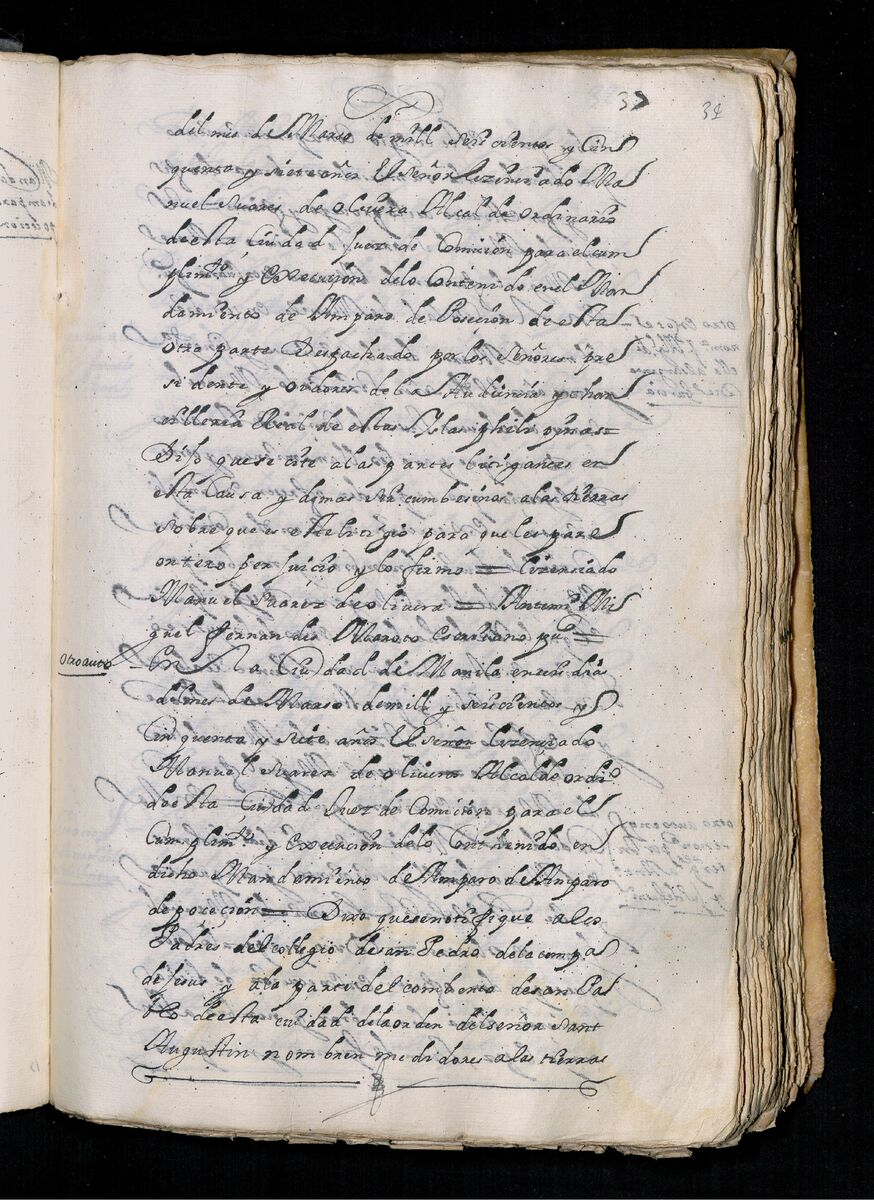 37 34
del mes de Marso de mill seiscientos y Cin
quenta y siete años El señor lizenciado Ma
nuel suares de olivera Alcalde ordinario
de esta Ciudad Juez de Comicion para el cum
plimto y Execucion delo Contenido en el Man
damiento de Amparo de Posicion de esta
otra parte Despachado por los señores pre
sidente y oydores de la Audiencia y chan
cilleria Real de estas Yslas philipinas=
Dijo que se cite a las partes litigantes en
esta Causa y demas circumbesinos a las tierras
sobre que es este litigio para que les pare
entero perjuicio y lo firmo = lizenciado
Manuel suarez de olivera = Antemi Mi
guel Fernandes Maroto Escrivano puco =
Otro auto
En la Ciudad de Manila en seis dias
del mes de Marso de mill y seiscientos y
Cinquenta y siete años El señor lizenciado
Manuel suarez de olivera Alcalde ordio
de esta Ciudad Juez de Comicion para el
Cumplimto y Execucion delo Conthenido en
dicho Mandamiento de Amparo de Amparo
de pocecion = Dixo que se notifique a los
Padres del collegio de san Pedro de la compa
de Jesus y a la parte del combento de san Pa
blo de esta ciudad dela orden del señor sant
Augustin nombren medidores a las tierras